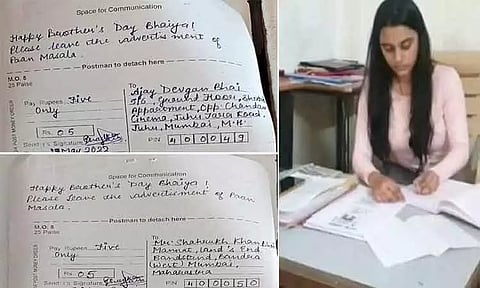 Space for Communication
Happy Brother's Day Bhaiya!
Please leave the advertisment of
Paan Masala.
Postman to detach here
M.O. 8
25 Paise
To
Pay Rupees Five
Only
Rs. 05
Ajay Devgan Bhai
Appartment, Opp. Chandan
Cinema, Juhu Tara Road.
Juhu, Mumbai, M.H.
Signature
2022
PIN 400049
Space for Communication
Happy Brother's Day Bhaiya!
Please leave the advertisment of Paan
Masala.
Postman to detach here
M.O. 8
25 Paise
To
Pay Rupees Five
Only
Rs. 05
Mr. Shahrukh Khan Bhai
Mannat, Land's End
Bandstand, Bandra
(West) Mumbai,
Maharastra
Signature
PIN 400050